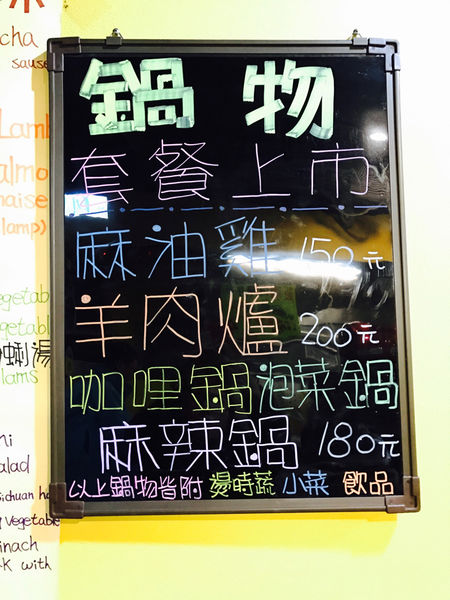 鍋物
套餐上市
麻油雞 150元
羊肉爐 200元
咖哩鍋 泡菜鍋
麻辣鍋 180元
以上鍋物皆附 燙時蔬 小菜 飲品
cha
sause
Lamb
almo
naise
lamp)
egetab
getab
蜊湯
lams
alad
ichuan
Vegetable
inach
with